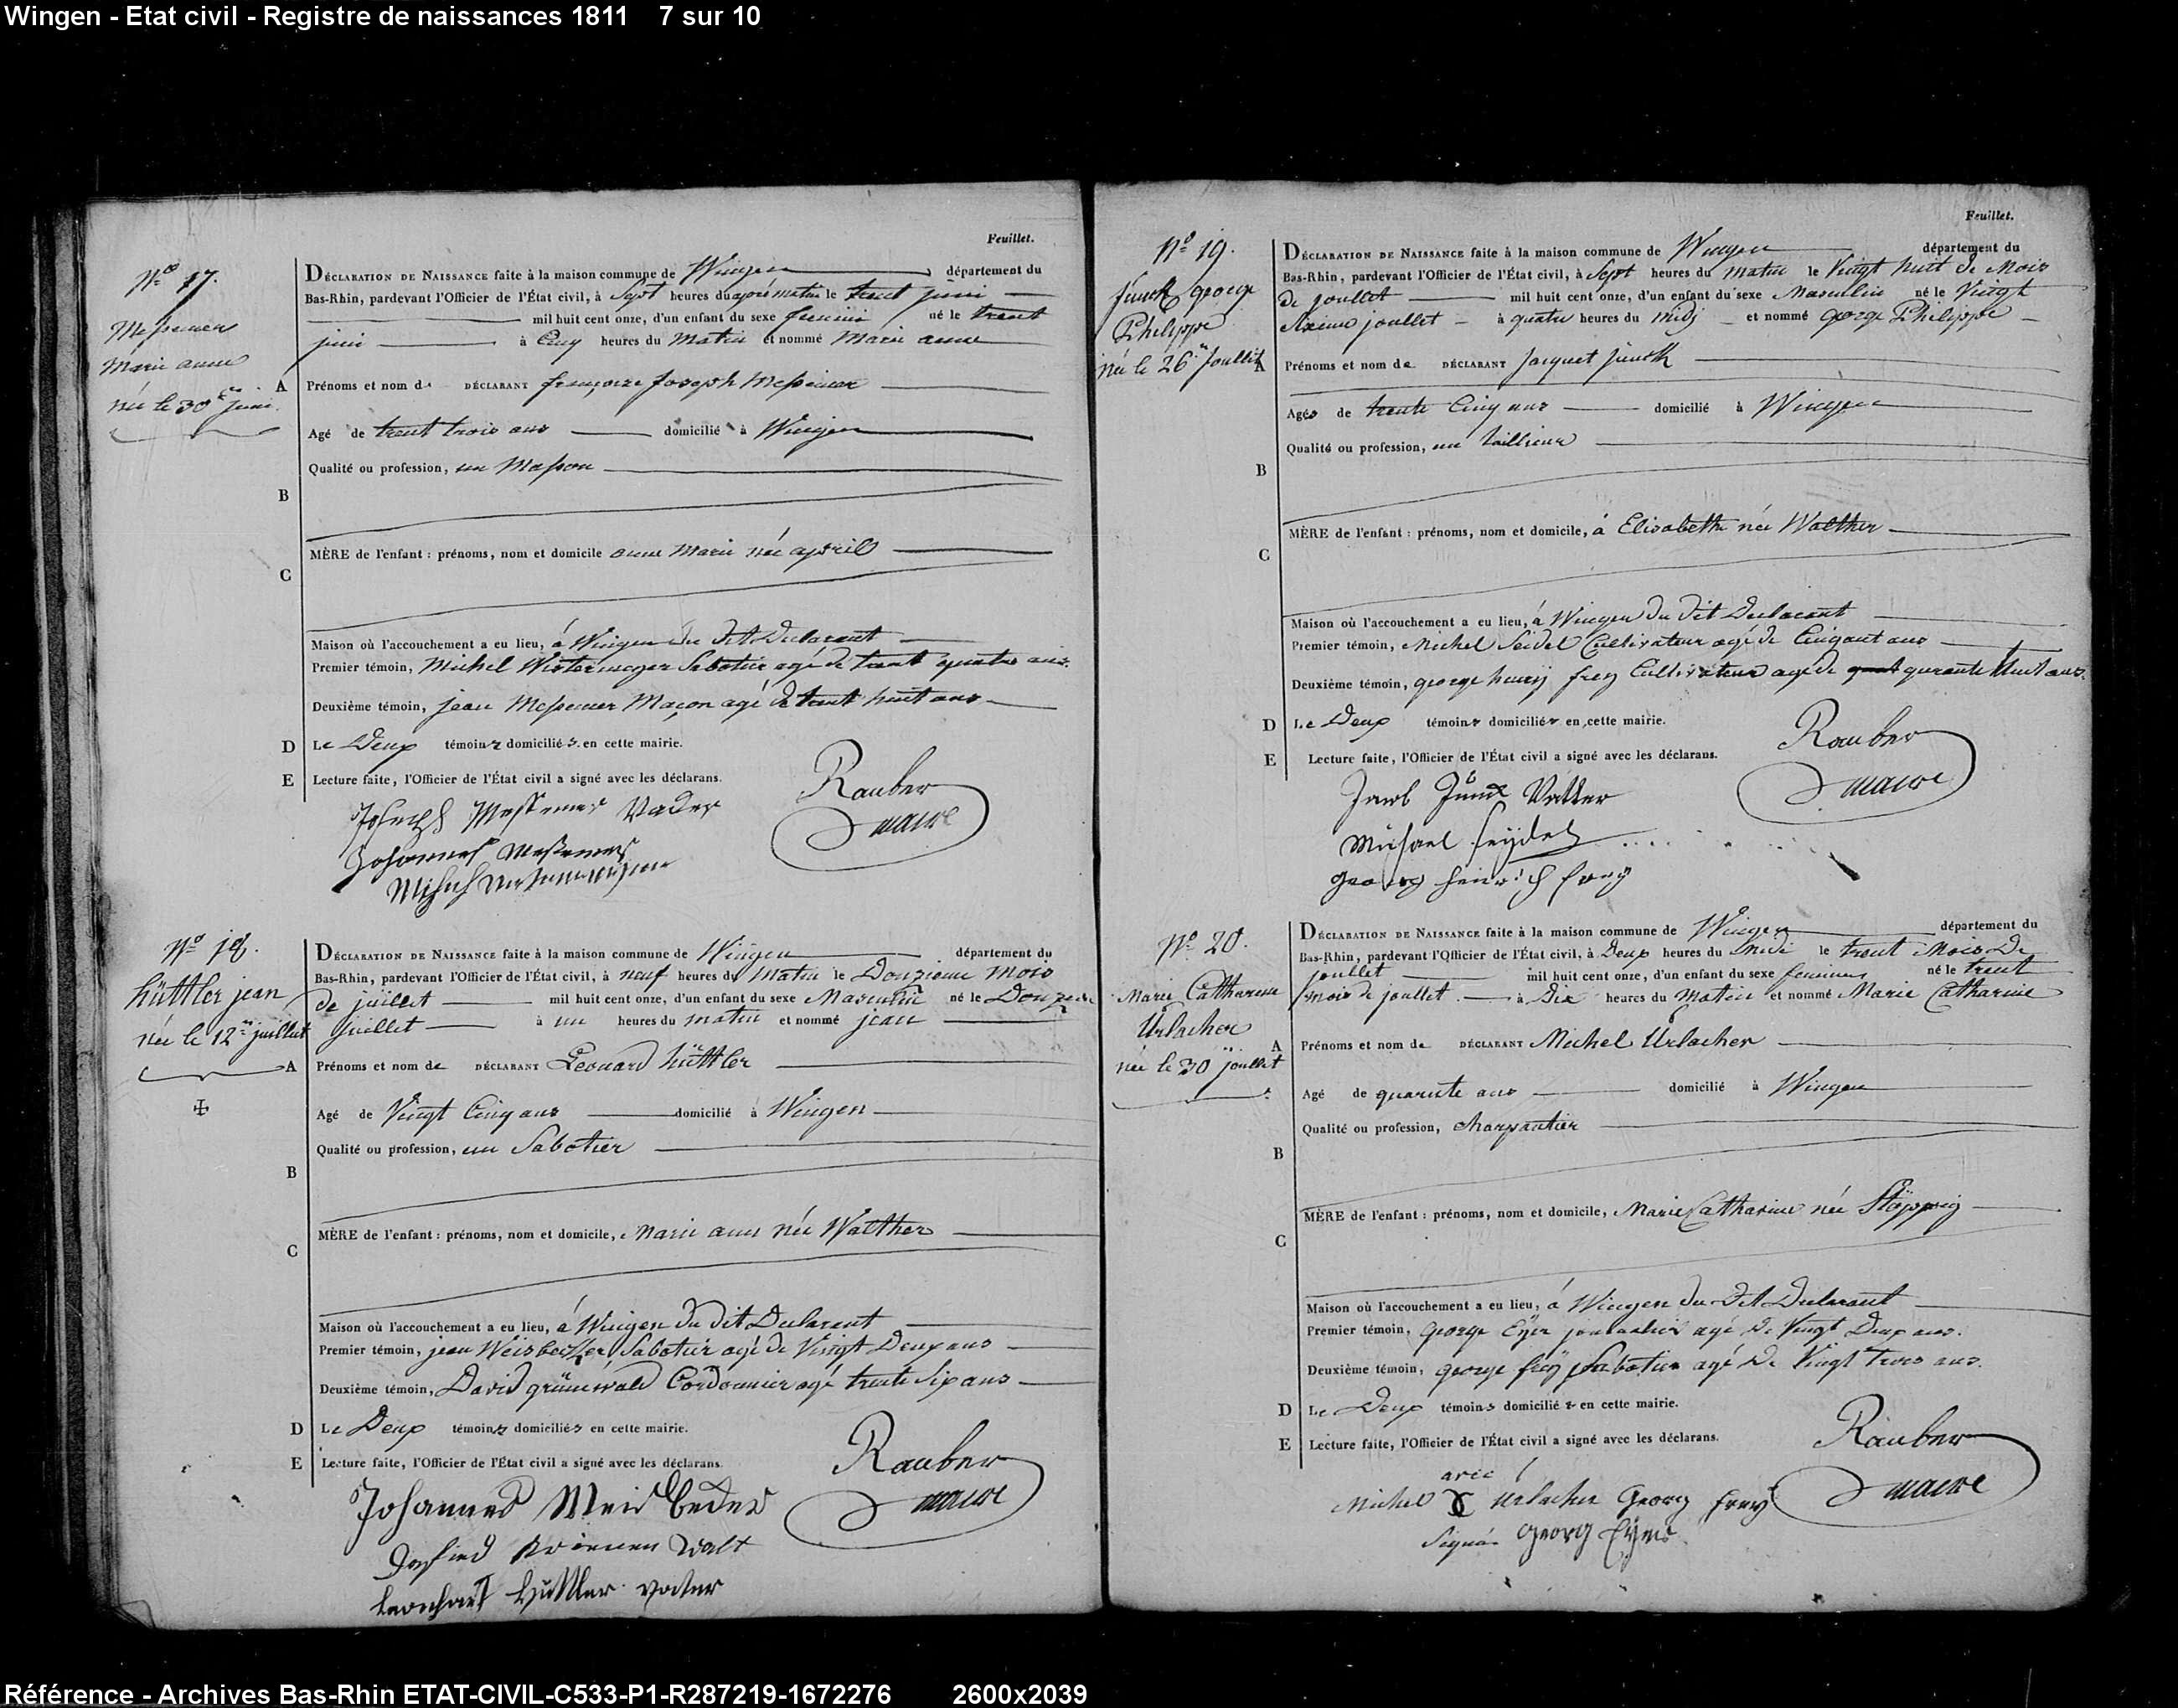 Wingen - Etat civil - Registre de naissances 1811 7 sur 10
Feuillet.
Nº 17.
Messemer
Marie anne
née le 30 juin.
DÉCLARATION DE NAISSANCE faite à la maison commune de Wingen département du
Bas-Rhin, pardevant l'Officier de l'État civil, à Sept heures du après matin le trent juin
mil huit cent onze, d'un enfant du sexe feminin né le trent
juin à Cinq heures du Matin et nommé Marie anne
A Prénoms et nom d DÉCLARANT françoise Joseph Messemer
Agé de trent trois ans domicilié à Wingen
Qualité ou profession, un Masson
B
MÈRE de l'enfant : prénoms, nom et domicile anne Marie née april
C
Maison où l'accouchement a eu lieu, á Wingen du dit Declarant
Premier témoin, Michel Wistermeyer Sabotier agé de trent quatre ans.
Deuxième témoin, jean Messemer Maçon agé de trent huit ans
D Le Deux témoins domiciliés en cette mairie.
E Lecture faite, l'Officier de l'État civil a signé avec les déclarans.
Rauber
maire
Joseph Messemer Vader
Johannes Messemer
Nº 18.
hüttler jean
née le 12 juillet
DÉCLARATION DE NAISSANCE faite à la maison commune de Wingen département du
Bas-Rhin, pardevant l'Officier de l'État civil, à neuf heures du Matin le Douzieme Mois
de juillet mil huit cent onze, d'un enfant du sexe Masculin né le Douzieme
juillet à un heures du matin et nommé jean
A Prénoms et nom de DÉCLARANT Leonard hüttler
Agé de Vingt Cinq ans domicilié à Wingen
Qualité ou profession, un Sabotier
B
MÈRE de l'enfant : prénoms, nom et domicile, Marie anne née Walther
C
Maison où l'accouchement a eu lieu, á Wingen du dit Declarant
Premier témoin, jean Weisbecker Sabotier agé de Vingt Deux ans
Deuxième témoin, David grünewald Cordonnier agé trente Six ans
D Le Deux témoins domiciliés en cette mairie.
E Lecture faite, l'Officier de l'État civil a signé avec les déclarans.
Rauber
maire
Johannes Weisbecker
Leonhart Hüttler vater
Feuillet.
Nº 19.
funck george
Philippe
née le 26 Joullet
DÉCLARATION DE NAISSANCE faite à la maison commune de Wingen département du
Bas-Rhin, pardevant l'Officier de l'État civil, à Sept heures du matin le Vingt huit de Mois
de joullet mil huit cent onze, d'un enfant du sexe Masculin né le Vingt
Sixieme joullet à quatre heures du midj et nommé george Philippe
A Prénoms et nom de DÉCLARANT Jacquet funck
Agés de trente Cinq ans domicilié à Wingen
Qualité ou profession, un tailleur
B
MÈRE de l'enfant : prénoms, nom et domicile, á Elisabeth née Walther
C
Maison où l'accouchement a eu lieu, á Wingen du dit Declarant
Premier témoin, Michel Seidel Cultivateur agé de Cinqant ans
Deuxième témoin, george henrÿ freÿ Cultivateur agé de quarante huit ans.
D Le Deux témoins domiciliés en cette mairie.
E Lecture faite, l'Officier de l'État civil a signé avec les déclarans.
Rauber
maire
Jacob Funck Vatter
Michael Seÿdel
Georg Heinrich Freÿ
Nº 20.
Marie Catharine
Urlacher
née le 30 joullet
DÉCLARATION DE NAISSANCE faite à la maison commune de Wingen département du
Bas-Rhin, pardevant l'Officier de l'État civil, à Deux heures du Midi le trent Mois De
joullet mil huit cent onze, d'un enfant du sexe feminin né le trent
mois de joullet. à Dix heures du Matin et nommé Marie Catharine
A Prénoms et nom de DÉCLARANT Michel Urlacher
Agé de quarante ans domicilié à Wingen
Qualité ou profession, charpantier
B
MÈRE de l'enfant : prénoms, nom et domicile, Marie Catharine née
C
Maison où l'accouchement a eu lieu, á Wingen du dit Declarant
Premier témoin, george Eÿer agé De Vingt Deux ans.
Deuxième témoin, george freÿ Sabotier agé De Vingt trois ans.
D Le Deux témoins domiciliés en cette mairie.
E Lecture faite, l'Officier de l'État civil a signé avec les déclarans.
Rauber
maire
avec
Michel Urlacher Georg Freÿ
Signé Georg
Référence - Archives Bas-Rhin ETAT-CIVIL-C533-P1-R287219-1672276 2600x2039